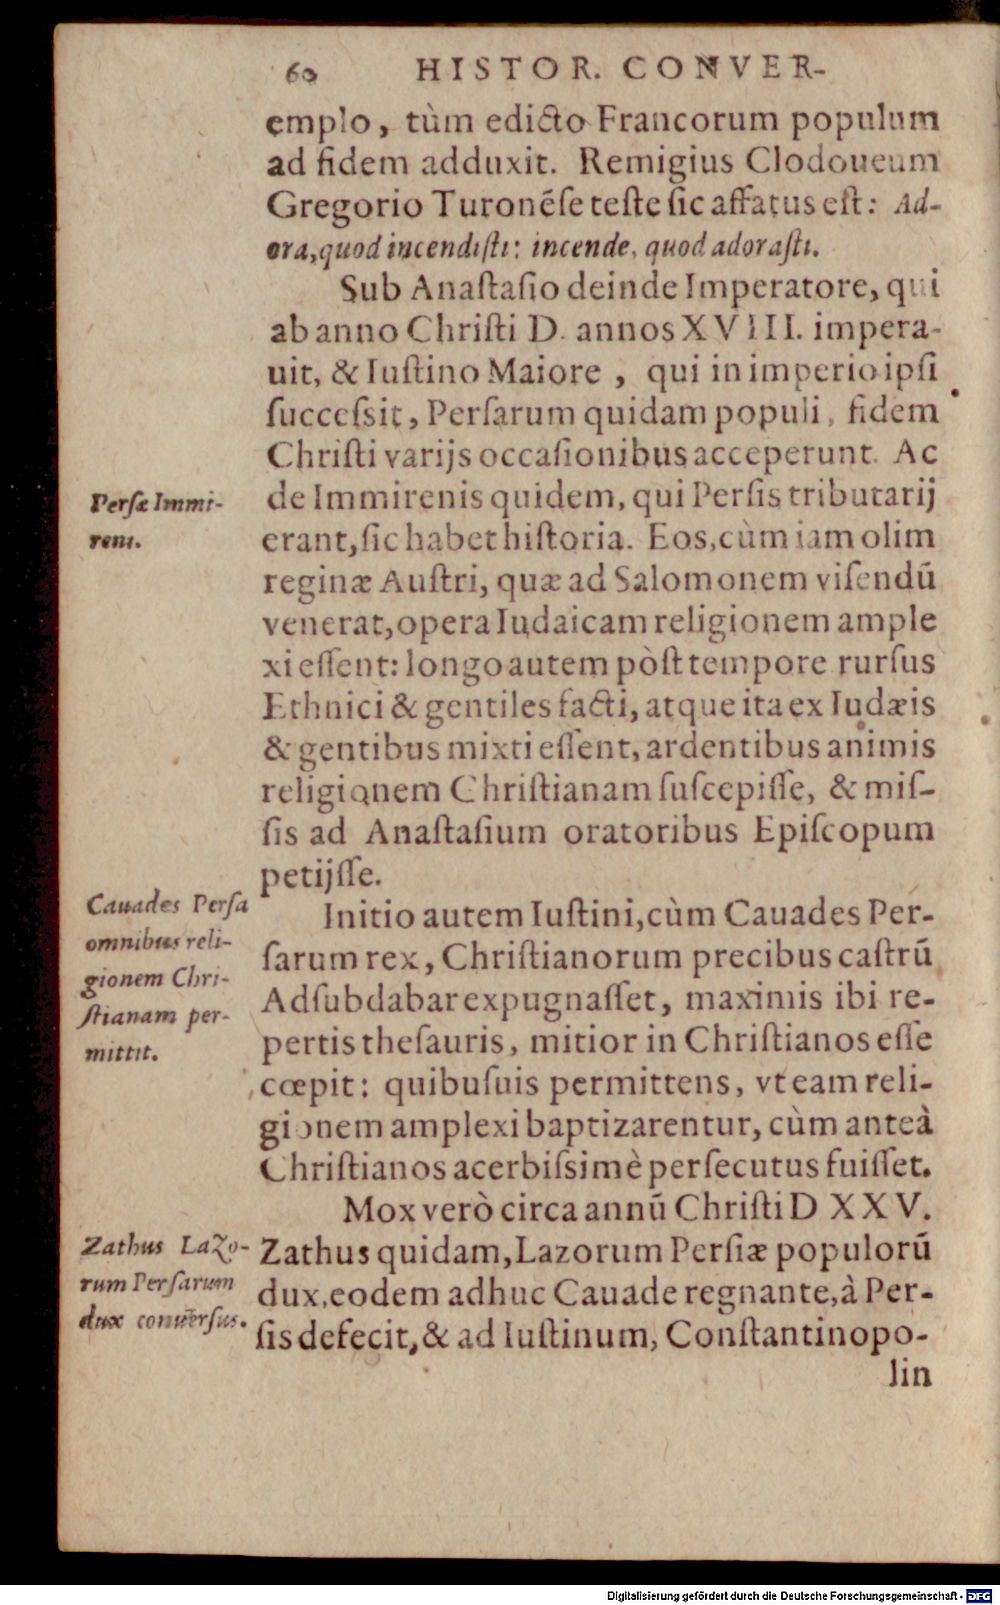 60 HISTOR. CONVER-
emplo, tùm edicto Francorum populum
ad fidem adduxit. Remigius Clodoueum
Gregorio Turonẽse teste sic affatus est: Ad-
ora, quod incendisti: incende, quod adorasti.
Sub Anastasio deinde Imperatore, qui
ab anno Christi D. annos XVIII. impera-
uit, & Iustino Maiore, qui in imperio ipsi
successit, Persarum quidam populi, fidem
Christi varijs occasionibus acceperunt. Ac
Persæ Immi-
reni.
de Immirenis quidem, qui Persis tributarij
erant, sic habet historia. Eos, cùm iam olim
reginæ Austri, quæ ad Salomonem visendũ
venerat, opera Iudaicam religionem ample
xi essent: longo autem pòst tempore rursus
Ethnici & gentiles facti, atque ita ex Iudæis
& gentibus mixti essent, ardentibus animis
religionem Christianam suscepisse, & mis-
sis ad Anastasium oratoribus Episcopum
petijsse.
Cauades Persa
omnibus reli-
gionem Chri-
stianam per-
mittit.
Initio autem Iustini, cùm Cauades Per-
sarum rex, Christianorum precibus castrũ
Adsubdabar expugnasset, maximis ibi re-
pertis thesauris, mitior in Christianos esse
cœpit: quibusuis permittens, vt eam reli-
gionem amplexi baptizarentur, cùm anteà
Christianos acerbissimè persecutus fuisset.
Mox verò circa annũ Christi D XXV.
Zathus Lazo-
rum Persarum
dux conuersus.
Zathus quidam, Lazorum Persiæ populorũ
dux, eodem adhuc Cauade regnante, à Per-
sis defecit, & ad Iustinum, Constantinopo-
lin
Digitalisierung gefördert durch die Deutsche Forschungsgemeinschaft - DFG